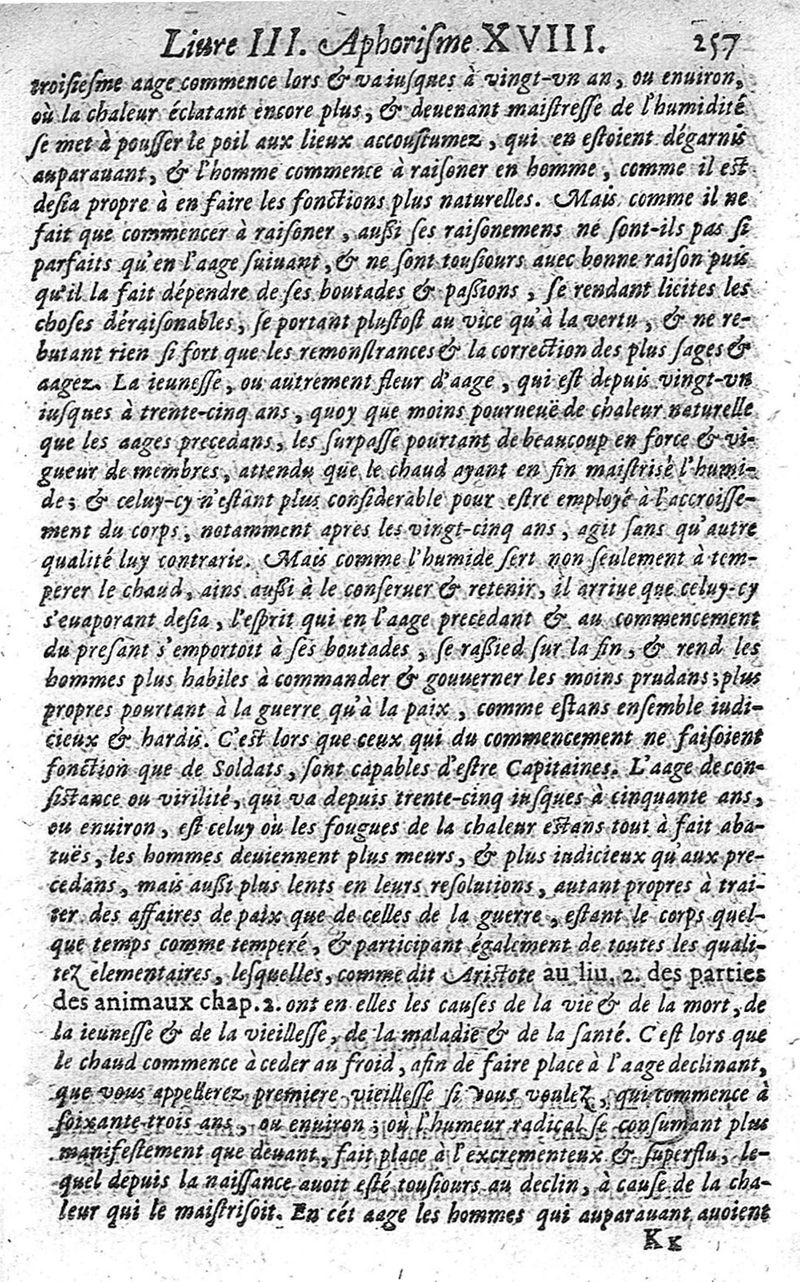 Liure III. Aphorisme XVIII. 257
troisiesme aage commence lors & va iusques à vingt-vn an, ou enuiron,
où la chaleur éclatant encore plus, & deuenant maistresse de l'humidité
se met à pousser le poil aux lieux accoustumez, qui en estoient dégarnis
auparauant, & l'homme commence à raisoner en homme, comme il est
desia propre à en faire les fonctions plus naturelles. Mais comme il ne
fait que commencer à raisoner, aussi ses raisonemens né sont-ils pas si
parfaits qu'en l'aage suiuant, & ne sont tousiours auec bonne raison puis
qu'il la fait dépendre de ses boutades & passions, se rendant licites les
choses déraisonables, se portant plustost au vice qu'à la vertu, & ne re-
butant rien si fort que les remonstrances & la correction des plus sages &
aagez. La ieunesse, ou autrement fleur d'aage, qui est depuis vingt-vn
iusques à trente-cinq ans, quoy que moins pourueuë de chaleur naturelle
que les aages precedans, les surpasse pourtant de beaucoup en force & vi-
gueur de membres, attendu que le chaud ayant en fin maistrisé l'humi-
de; & celuy-cy n'estant plus considerable pour estre employé à l'accroisse-
ment du corps, notamment apres les vingt-cinq ans, agit sans qu'autre
qualité luy contrarie. Mais comme l'humide sert non seulement à tem-
perer le chaud, ains aussi à le conseruer & retenir, il arriue que celuy-cy
s'euaporant desia, l'esprit qui en l'aage precedant & au commencement
du presant s'emportoit à ses boutades, se rassied sur la fin, & rend les
hommes plus habiles à commander & gouuerner les moins prudans; plus
propres pourtant à la guerre qu'à la paix, comme estans ensemble iudi-
cieux & hardis. C'est lors que ceux qui du commencement ne faisoient
fonction que de Soldats, sont capables d'estre Capitaines. L'aage de con-
sistance ou virilité, qui va depuis trente-cinq iusques à cinquante ans,
ou enuiron, est celuy où les fougues de la chaleur estans tout à fait aba-
tuës, les hommes deuiennent plus meurs, & plus iudicieux qu'aux pre-
cedans, mais aussi plus lents en leurs resolutions, autant propres à trai-
ter des affaires de paix que de celles de la guerre, estant le corps quel-
que temps comme temperé, & participant également de toutes les quali-
tez elementaires, lesquelles, comme dit Aristote au liu. 2. des parties
des animaux chap. 2. ont en elles les causes de la vie & de la mort, de
la ieunesse & de la vieillesse, de la maladie & de la santé. C'est lors que
le chaud commence à ceder au froid, afin de faire place à l'aage declinant,
que vous appellerez premiere vieillesse si vous voulez, qui commence à
soixante-trois ans, ou enuiron; où l'humeur radical se consumant plus
manifestement que deuant, fait place à l'excrementeux & superflu, le-
quel depuis la naissance auoit esté tousiours au declin, à cause de la cha-
leur qui le maistrisoit. En cét aage les hommes qui auparauant auoient
Kk